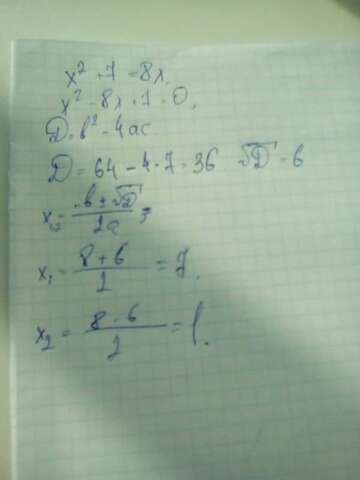 x² + 7 = 8x.
x² - 8x + 7 = 0.
D = b² - 4ac.
D = 64 - 4·7 = 36. √D = 6
x₁,₂ = (-b ± √D) / 2a =
x₁ = (8 + 6) / 2 = 7.
x₂ = (8 - 6) / 2 = 1.